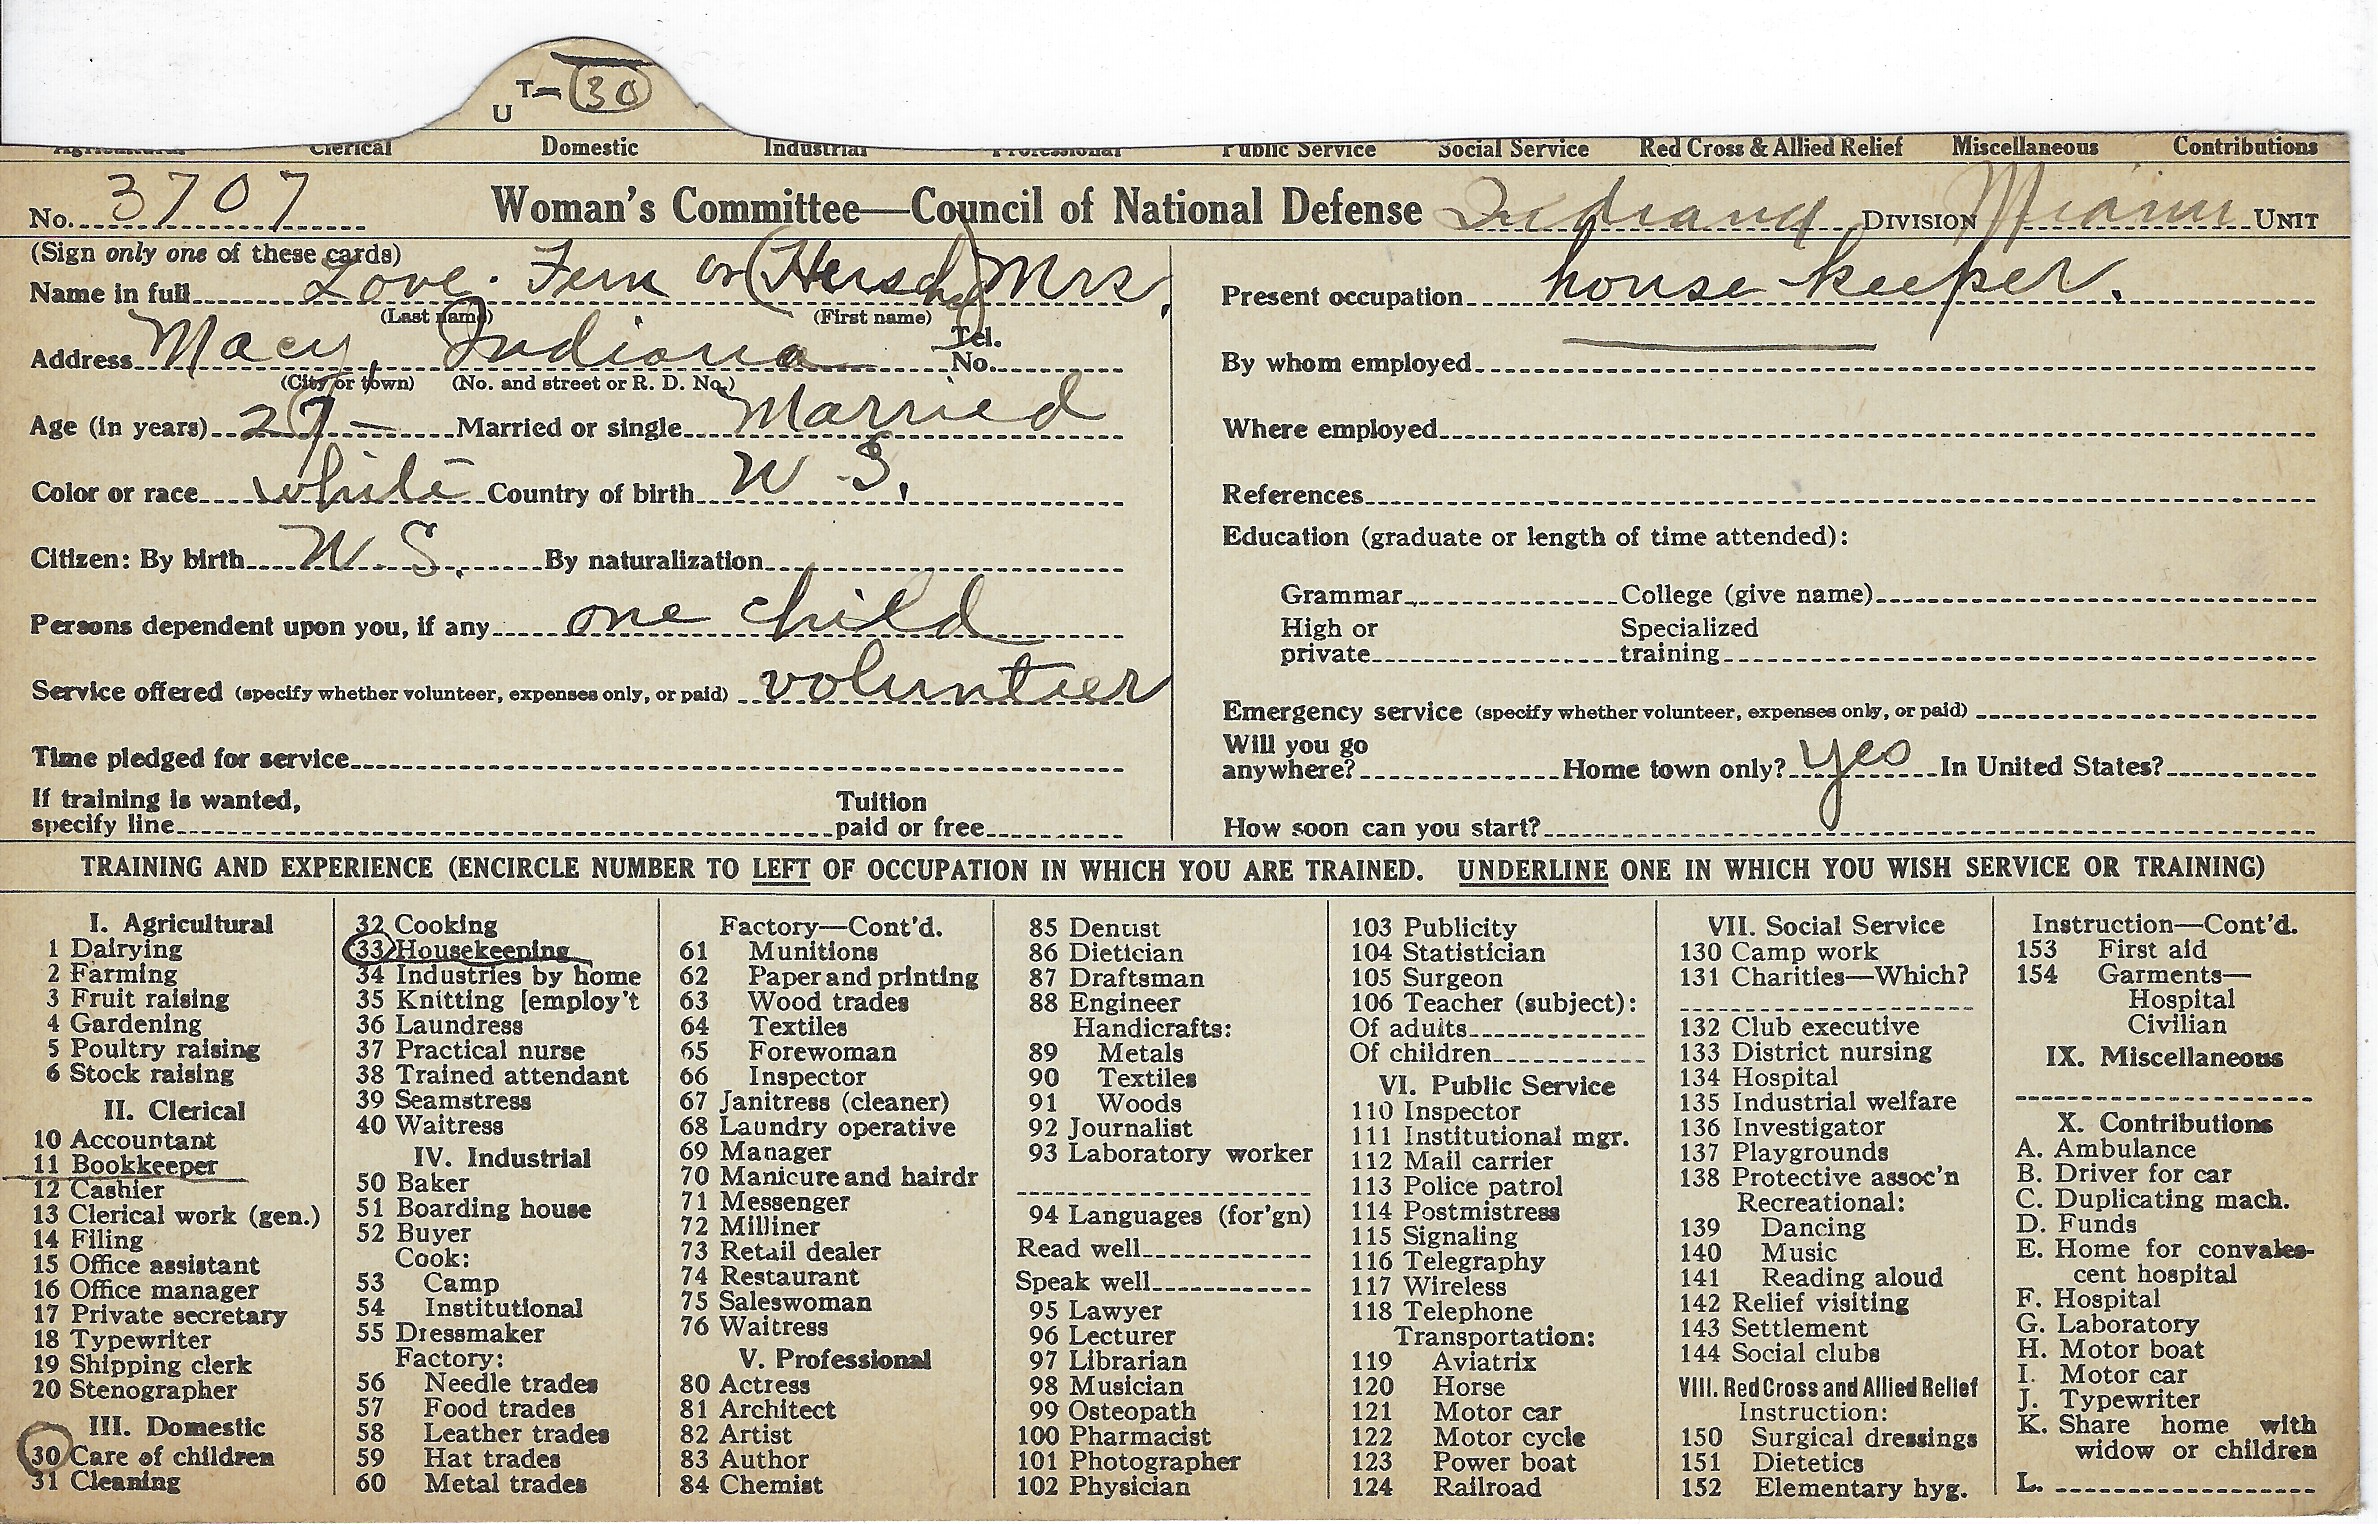 T— 30
U
Agricultural Clerical Domestic Industrial Professional Public Service Social Service Red Cross & Allied Relief Miscellaneous Contributions
No. 3707 Woman's Committee—Council of National Defense Indiana DIVISION Miami UNIT
(Sign only one of these cards)
Name in full Love. Fern or (Hersch) Mrs.
(Last name) (First name)
Address Macy, Indiana Tel. No.
(City or town) (No. and street or R. D. No.)
Age (in years) 27 — Married or single Married
Color or race white Country of birth U.S.
Citizen: By birth U.S. By naturalization
Persons dependent upon you, if any one child
Service offered (specify whether volunteer, expenses only, or paid) voluntier
Time pledged for service
If training is wanted,
specify line Tuition paid or free
Present occupation house keeper.
By whom employed
Where employed
References
Education (graduate or length of time attended):
Grammar College (give name)
High or private Specialized training
Emergency service (specify whether volunteer, expenses only, or paid)
Will you go anywhere? Home town only? yes In United States?
How soon can you start?
TRAINING AND EXPERIENCE (ENCIRCLE NUMBER TO LEFT OF OCCUPATION IN WHICH YOU ARE TRAINED. UNDERLINE ONE IN WHICH YOU WISH SERVICE OR TRAINING)
I. Agricultural
1 Dairying
2 Farming
3 Fruit raising
4 Gardening
5 Poultry raising
6 Stock raising
II. Clerical
10 Accountant
11 Bookkeeper
12 Cashier
13 Clerical work (gen.)
14 Filing
15 Office assistant
16 Office manager
17 Private secretary
18 Typewriter
19 Shipping clerk
20 Stenographer
III. Domestic
30 Care of children
31 Cleaning
32 Cooking
33 Housekeeping
34 Industries by home
35 Knitting [employ't
36 Laundress
37 Practical nurse
38 Trained attendant
39 Seamstress
40 Waitress
IV. Industrial
50 Baker
51 Boarding house
52 Buyer
Cook:
53 Camp
54 Institutional
55 Dressmaker
Factory:
56 Needle trades
57 Food trades
58 Leather trades
59 Hat trades
60 Metal trades
Factory—Cont'd.
61 Munitions
62 Paper and printing
63 Wood trades
64 Textiles
65 Forewoman
66 Inspector
67 Janitress (cleaner)
68 Laundry operative
69 Manager
70 Manicure and hairdr
71 Messenger
72 Milliner
73 Retail dealer
74 Restaurant
75 Saleswoman
76 Waitress
V. Professional
80 Actress
81 Architect
82 Artist
83 Author
84 Chemist
85 Dentist
86 Dietician
87 Draftsman
88 Engineer
Handicrafts:
89 Metals
90 Textiles
91 Woods
92 Journalist
93 Laboratory worker
94 Languages (for'gn)
Read well
Speak well
95 Lawyer
96 Lecturer
97 Librarian
98 Musician
99 Osteopath
100 Pharmacist
101 Photographer
102 Physician
103 Publicity
104 Statistician
105 Surgeon
106 Teacher (subject):
Of adults
Of children
VI. Public Service
110 Inspector
111 Institutional mgr.
112 Mail carrier
113 Police patrol
114 Postmistress
115 Signaling
116 Telegraphy
117 Wireless
118 Telephone
Transportation:
119 Aviatrix
120 Horse
121 Motor car
122 Motor cycle
123 Power boat
124 Railroad
VII. Social Service
130 Camp work
131 Charities—Which?
132 Club executive
133 District nursing
134 Hospital
135 Industrial welfare
136 Investigator
137 Playgrounds
138 Protective assoc'n
Recreational:
139 Dancing
140 Music
141 Reading aloud
142 Relief visiting
143 Settlement
144 Social clubs
VIII. Red Cross and Allied Relief
Instruction:
150 Surgical dressings
151 Dietetics
152 Elementary hyg.
Instruction—Cont'd.
153 First aid
154 Garments—
Hospital
Civilian
IX. Miscellaneous
X. Contributions
A. Ambulance
B. Driver for car
C. Duplicating mach.
D. Funds
E. Home for convales-
cent hospital
F. Hospital
G. Laboratory
H. Motor boat
I. Motor car
J. Typewriter
K. Share home with
widow or children
L.